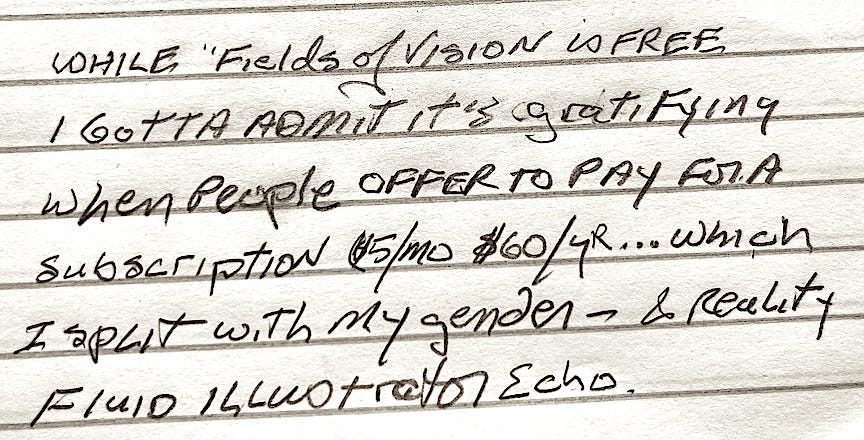 WHILE "Fields of VISION is FREE
I GOTTA ADMIT it's gratifying
when People OFFER TO PAY FOR A
subscription $5/mo $60/YR... which
I split with My gender- & Reality
Fluid Illustrator Echo.